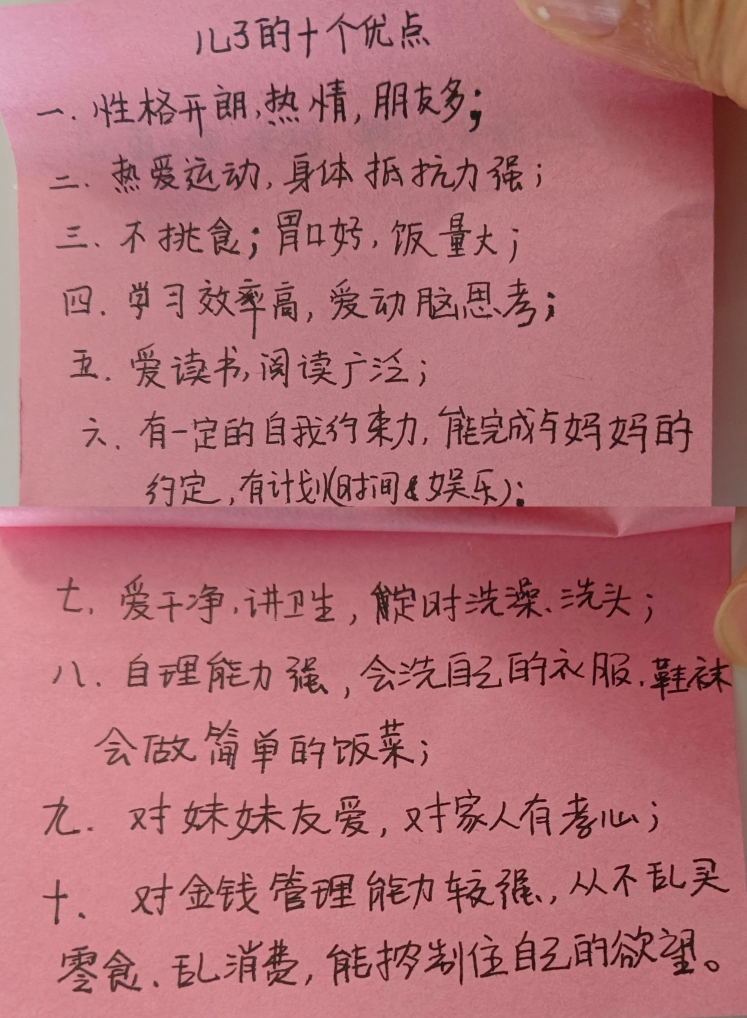 儿子的十个优点
一.性格开朗,热情,朋友多;
二.热爱运动,身体抵抗力强;
三、不挑食;胃口好,饭量大;
四.学习效率高,爱动脑思考;
五.爱读书,阅读广泛;
六、有一定的自我约束力,能完成与妈妈的
约定,有计划(时间&娱乐);
七.爱干净,讲卫生,能定时洗澡、洗头;
八.自理能力强,会洗自己的衣服、鞋袜
会做简单的饭菜;
九.对妹妹友爱,对家人有孝心;
十、对金钱管理能力较强,从不乱买
零食、乱消费,能控制住自己的欲望。